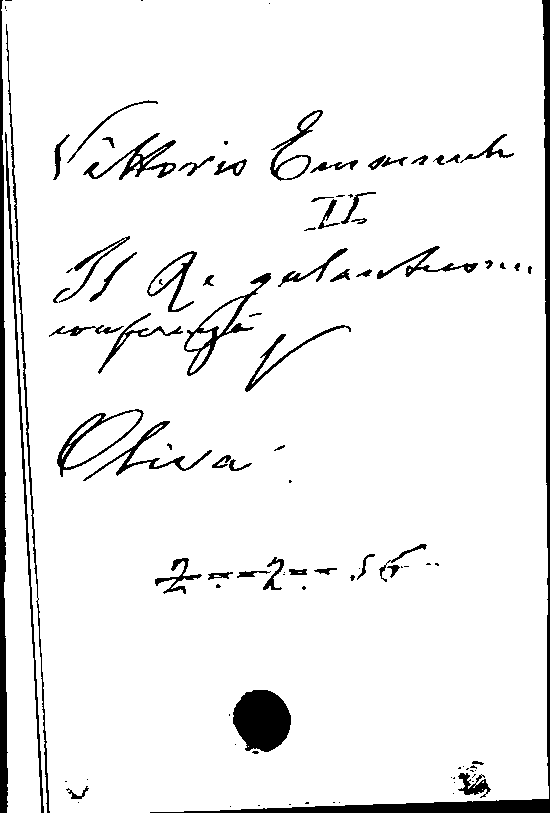 Vittorio Emanuele
II
Il Re galantuomo
conferenza
V
Oliva
2 - 2 - 56